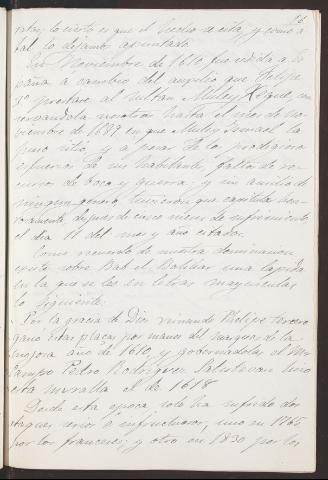 26
lo cierto es que el hecho se cita, y como á
tal lo dejamos apuntado.
En Noviembre de 1610, fué cedida á Es-
paña á cambio del auxilio que Felipe
3º prestare al sultan Muley Xeque, con
servandola nosotros hasta el mes de No-
viembre de 1689 en que Muley Ismael la
puso sitio, y á pesar de los prodigiosos
esfuerzos de sus habitantes, faltos de re-
cursos de boca y guerra y sin auxilio de
ningun género, tuvieron que capitular hon-
rosamente, despues de cinco meses de sufrimientos
el dia 11 del mes y año citados.
Como recuerdo de nuestra dominacion
existe sobre Bab el una lapida
en la que se lee en letras mayusculas
lo siguiente:
Por la gracia de Dios reinando Phelipe tercero
ganó estas plazas por manos del marques de la
Inojosa año de 1610, y gobernandolas el Mro
Campo Pedro Rodriguez Satistevan hizo
esta muralla el de 1618
Desde esta época, solo ha sufrido dos
ataques serios é infructuosos; uno en 1765
por los franceses; y otro en 1830 por los